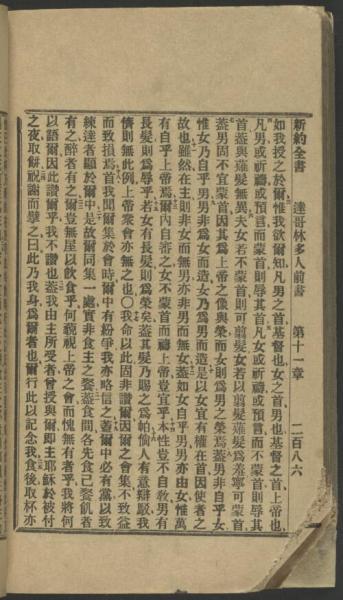 新約全書　達哥林多人前書　第十一章　二百八六
如我授之於爾惟我欲爾知凡男之首基督也女之首男也基督之首上帝也
凡男或祈禱或預言而蒙首則辱其首凡女或祈禱或預言而不蒙首則辱其
首蓋與薙髮無異夫女若不蒙首則可翦髮女若以翦髮薙髮爲羞寧可蒙首
蓋男固不宜蒙首因其爲上帝之像與榮而女則爲男之榮焉蓋男非自乎女
惟女乃自乎男男非爲女而造女乃爲男而造是以女宜有權在首因使者之
故也雖然在主則非女而無男亦非男而無女蓋如女自乎男男亦由女惟萬
有自乎上帝焉爾內自審之女不蒙首而禱上帝豈宜乎本性豈不自敎男有
長髮則爲辱乎若女有長髮則爲榮矣蓋其髮乃賜之爲帕倘人有意辯駁我
儕則無此例上帝衆會亦無之也〇我命以此固非讚爾因爾之會集不致益
而致損焉首我聞爾集於會時爾中有紛爭我亦略信之蓋爾中必有黨以致
練達者顯於爾中是故爾同集一處實非食主之餐蓋食間各先食己餐飢者
有之醉者有之爾豈無屋以飲食乎何藐視上帝之會而愧無有者乎我將何
以語爾因此讚爾乎我不讚也蓋我由主所受者曾授與爾卽主耶穌於被付
之夜取餅祝謝而擘之曰此乃我身爲爾者也爾行此以記念我食後取杯亦